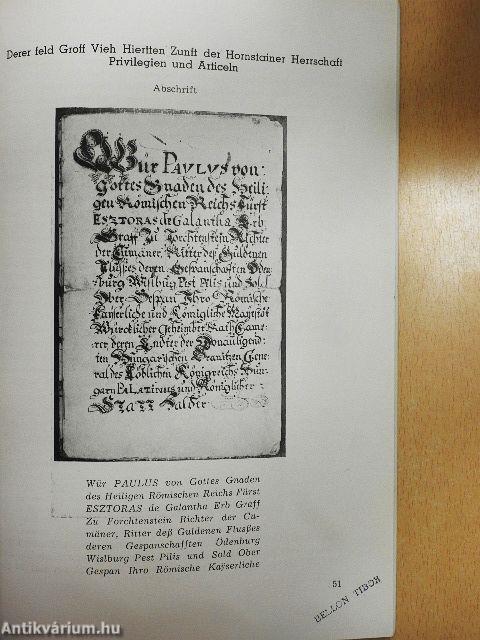 Derer feld Groff Vieh Hiertten Zunft der Hornstainer Herrschaft
Privilegien und Articeln
Abschrift
Wür PAULUS von
Gottes Gnaden des Heili-
gen Römischen Reichs Fürst
ESZTORAS de Galantha Erb
Graff Zu Forchtenstein Richter
der Cumaner, Ritter deß Guldenen
Flußes deren Gespanschafften Öden-
burg Wislburg Pest Pilis und Sold
Ober Gespan Ihro Römische
Kayserliche und Königliche Mayestöt
Würcklicher Geheimber Rath Came-
rer deren Ländter der Donauligend-
ten Hungarischen Granitzen Gene-
ral des Löblichen Königreichs Hun-
garn PALATINUS und Königlicher
STATT Halder
Wür PAULUS von Gottes Gnaden
des Heiligen Römischen Reichs Fürst
ESZTORAS de Galantha Erb Graff
Zu Forchtenstein Richter der Cu-
maner, Ritter deß Guldenen Flußes
deren Gespanschafften Ödenburg
Wislburg Pest Pilis und Sold Ober
Gespan Ihro Römische Kayserliche
51
BELLON TIBOR
Antikvárium.hu